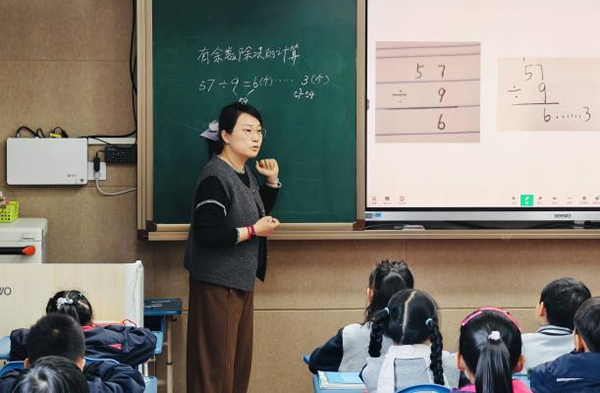 有余数除法的计算
57÷9=6(个)……3(个)
5 7
÷ 9
6
57
÷ 9
6……3
seewo